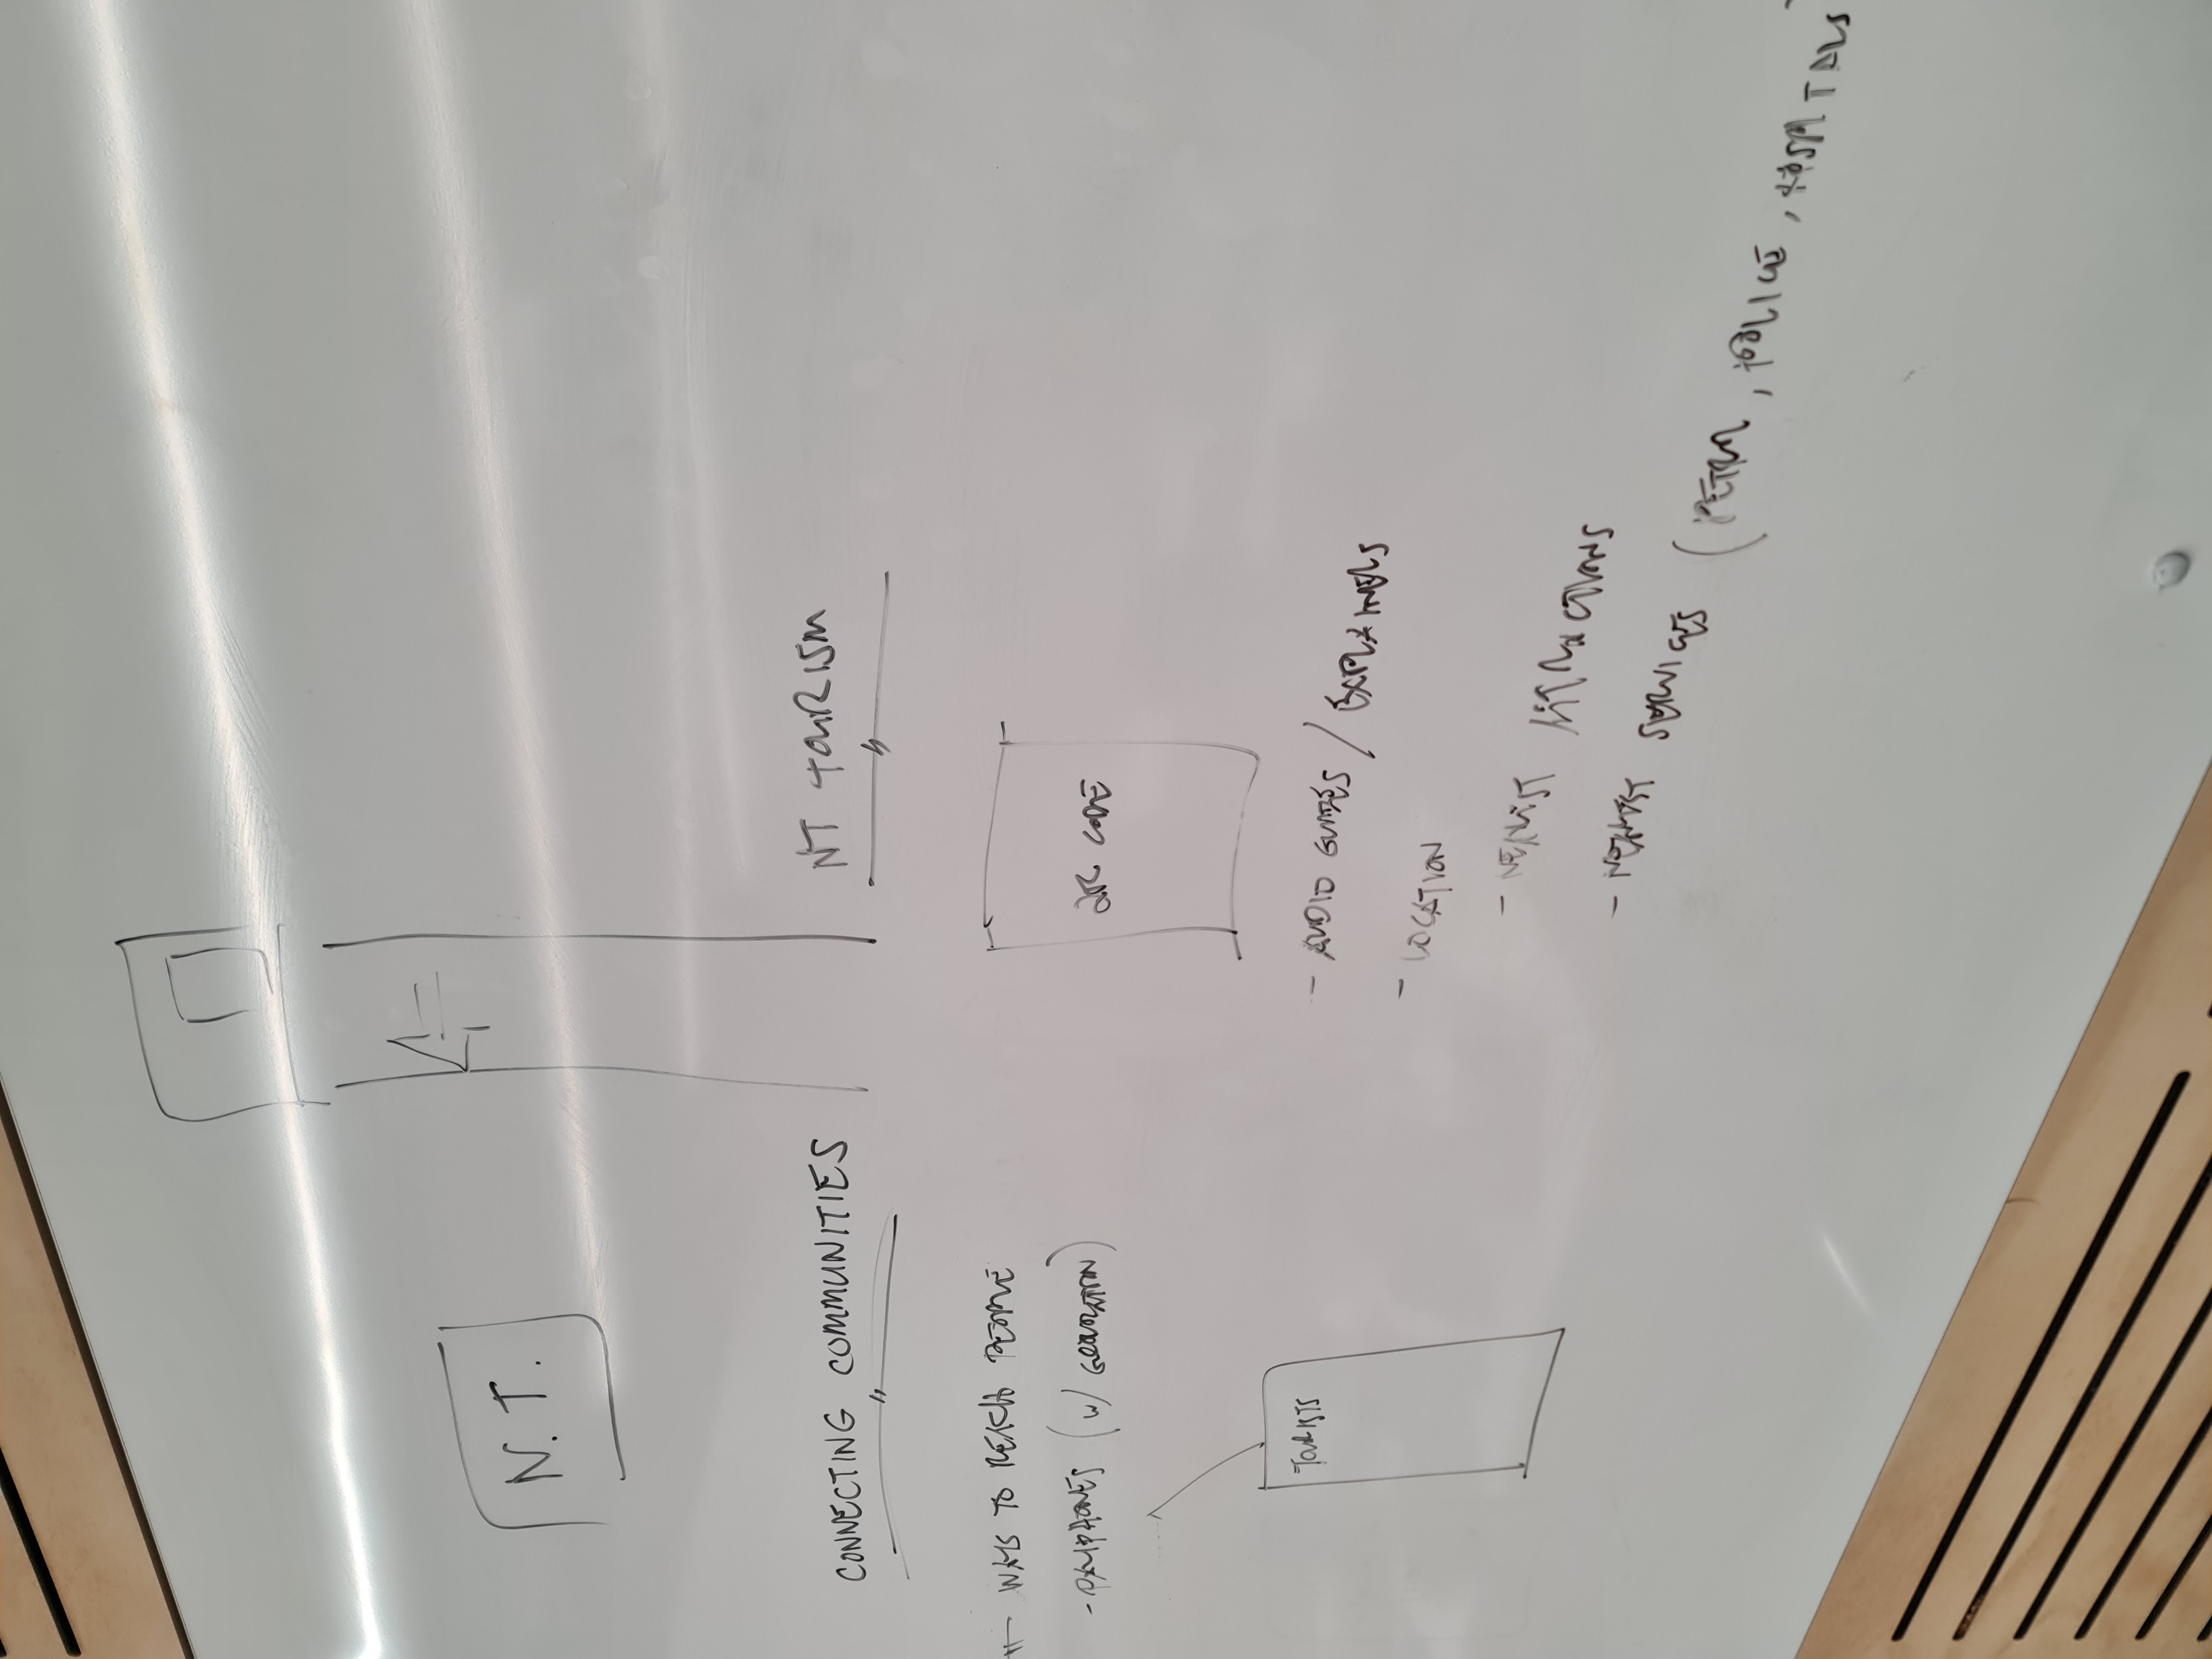 N. T.
CONNECTING COMMUNITIES
- WAYS TO REACH PEOPLE
- PAYPHONES (W/ GEOLOCATION)
TOURISTS
NT TOURISM
QR CODE
- AUDIO GUIDES / EXPLAINERS
- LOCATION
- NEAREST ATTRACTIONS
- NEAREST SERVICES (PETROL, POLICE, HOSPITALS